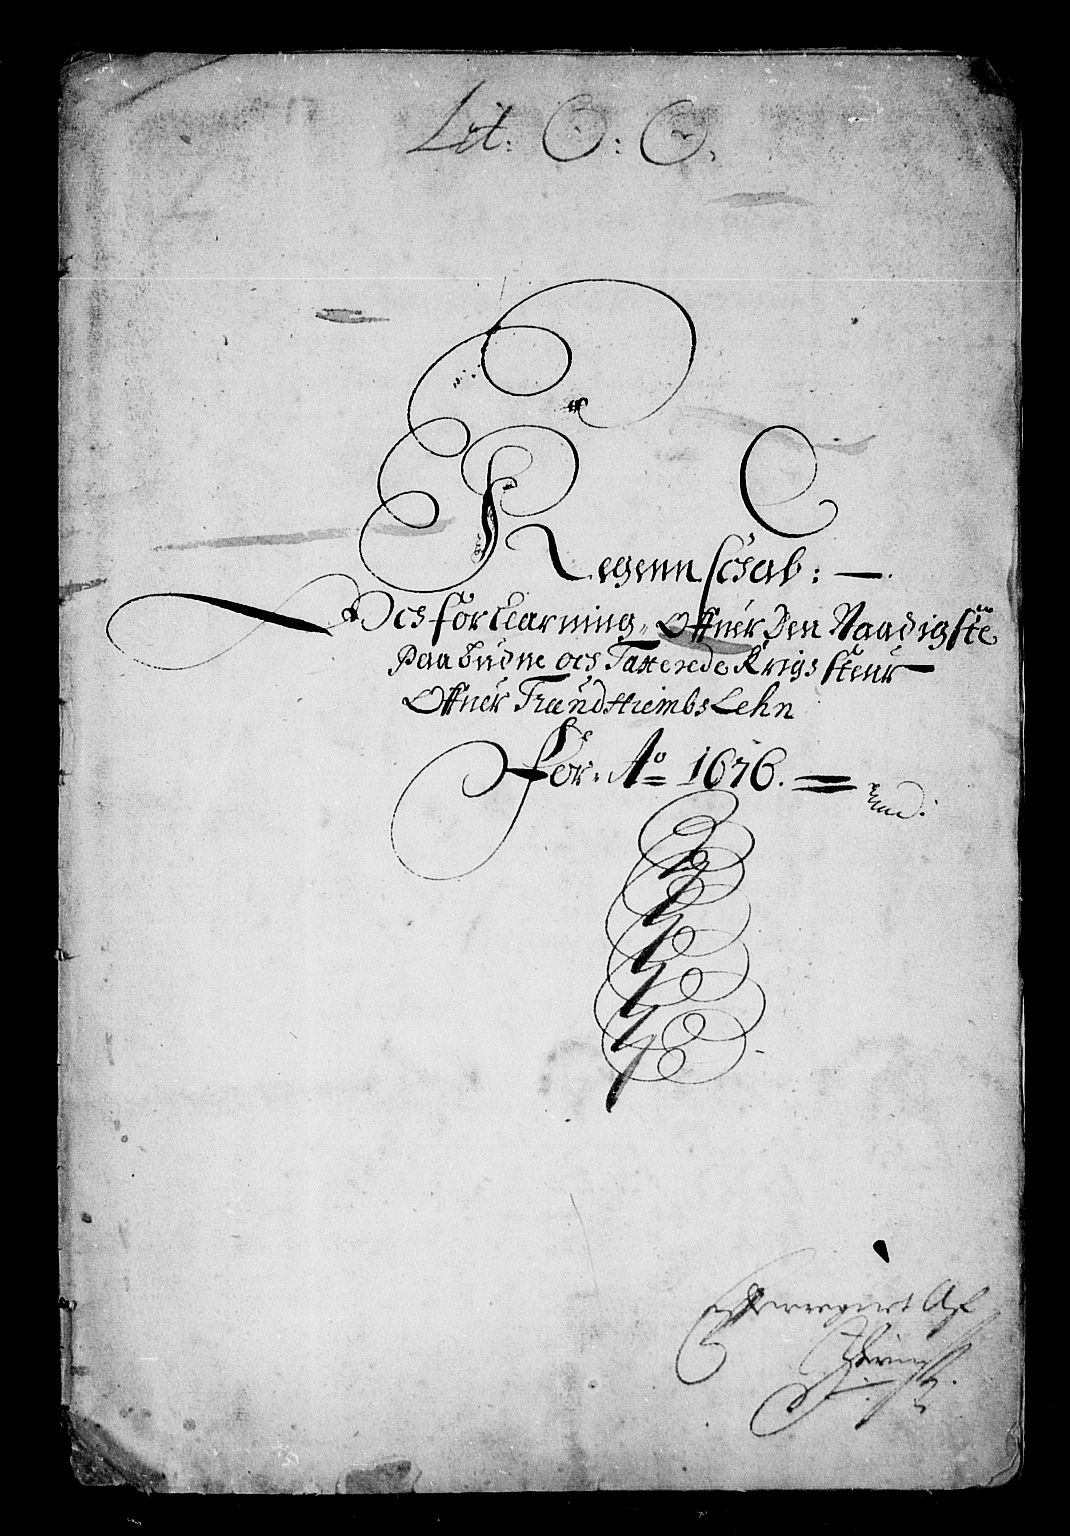 Lit. C: C.
Regennschab:
Och forclarning, Offuer Den Naadigste
Paabudne och Taxerede Krigs Steur
Offuer Trundhiembs Lehn
For. Ao 1676.
Af